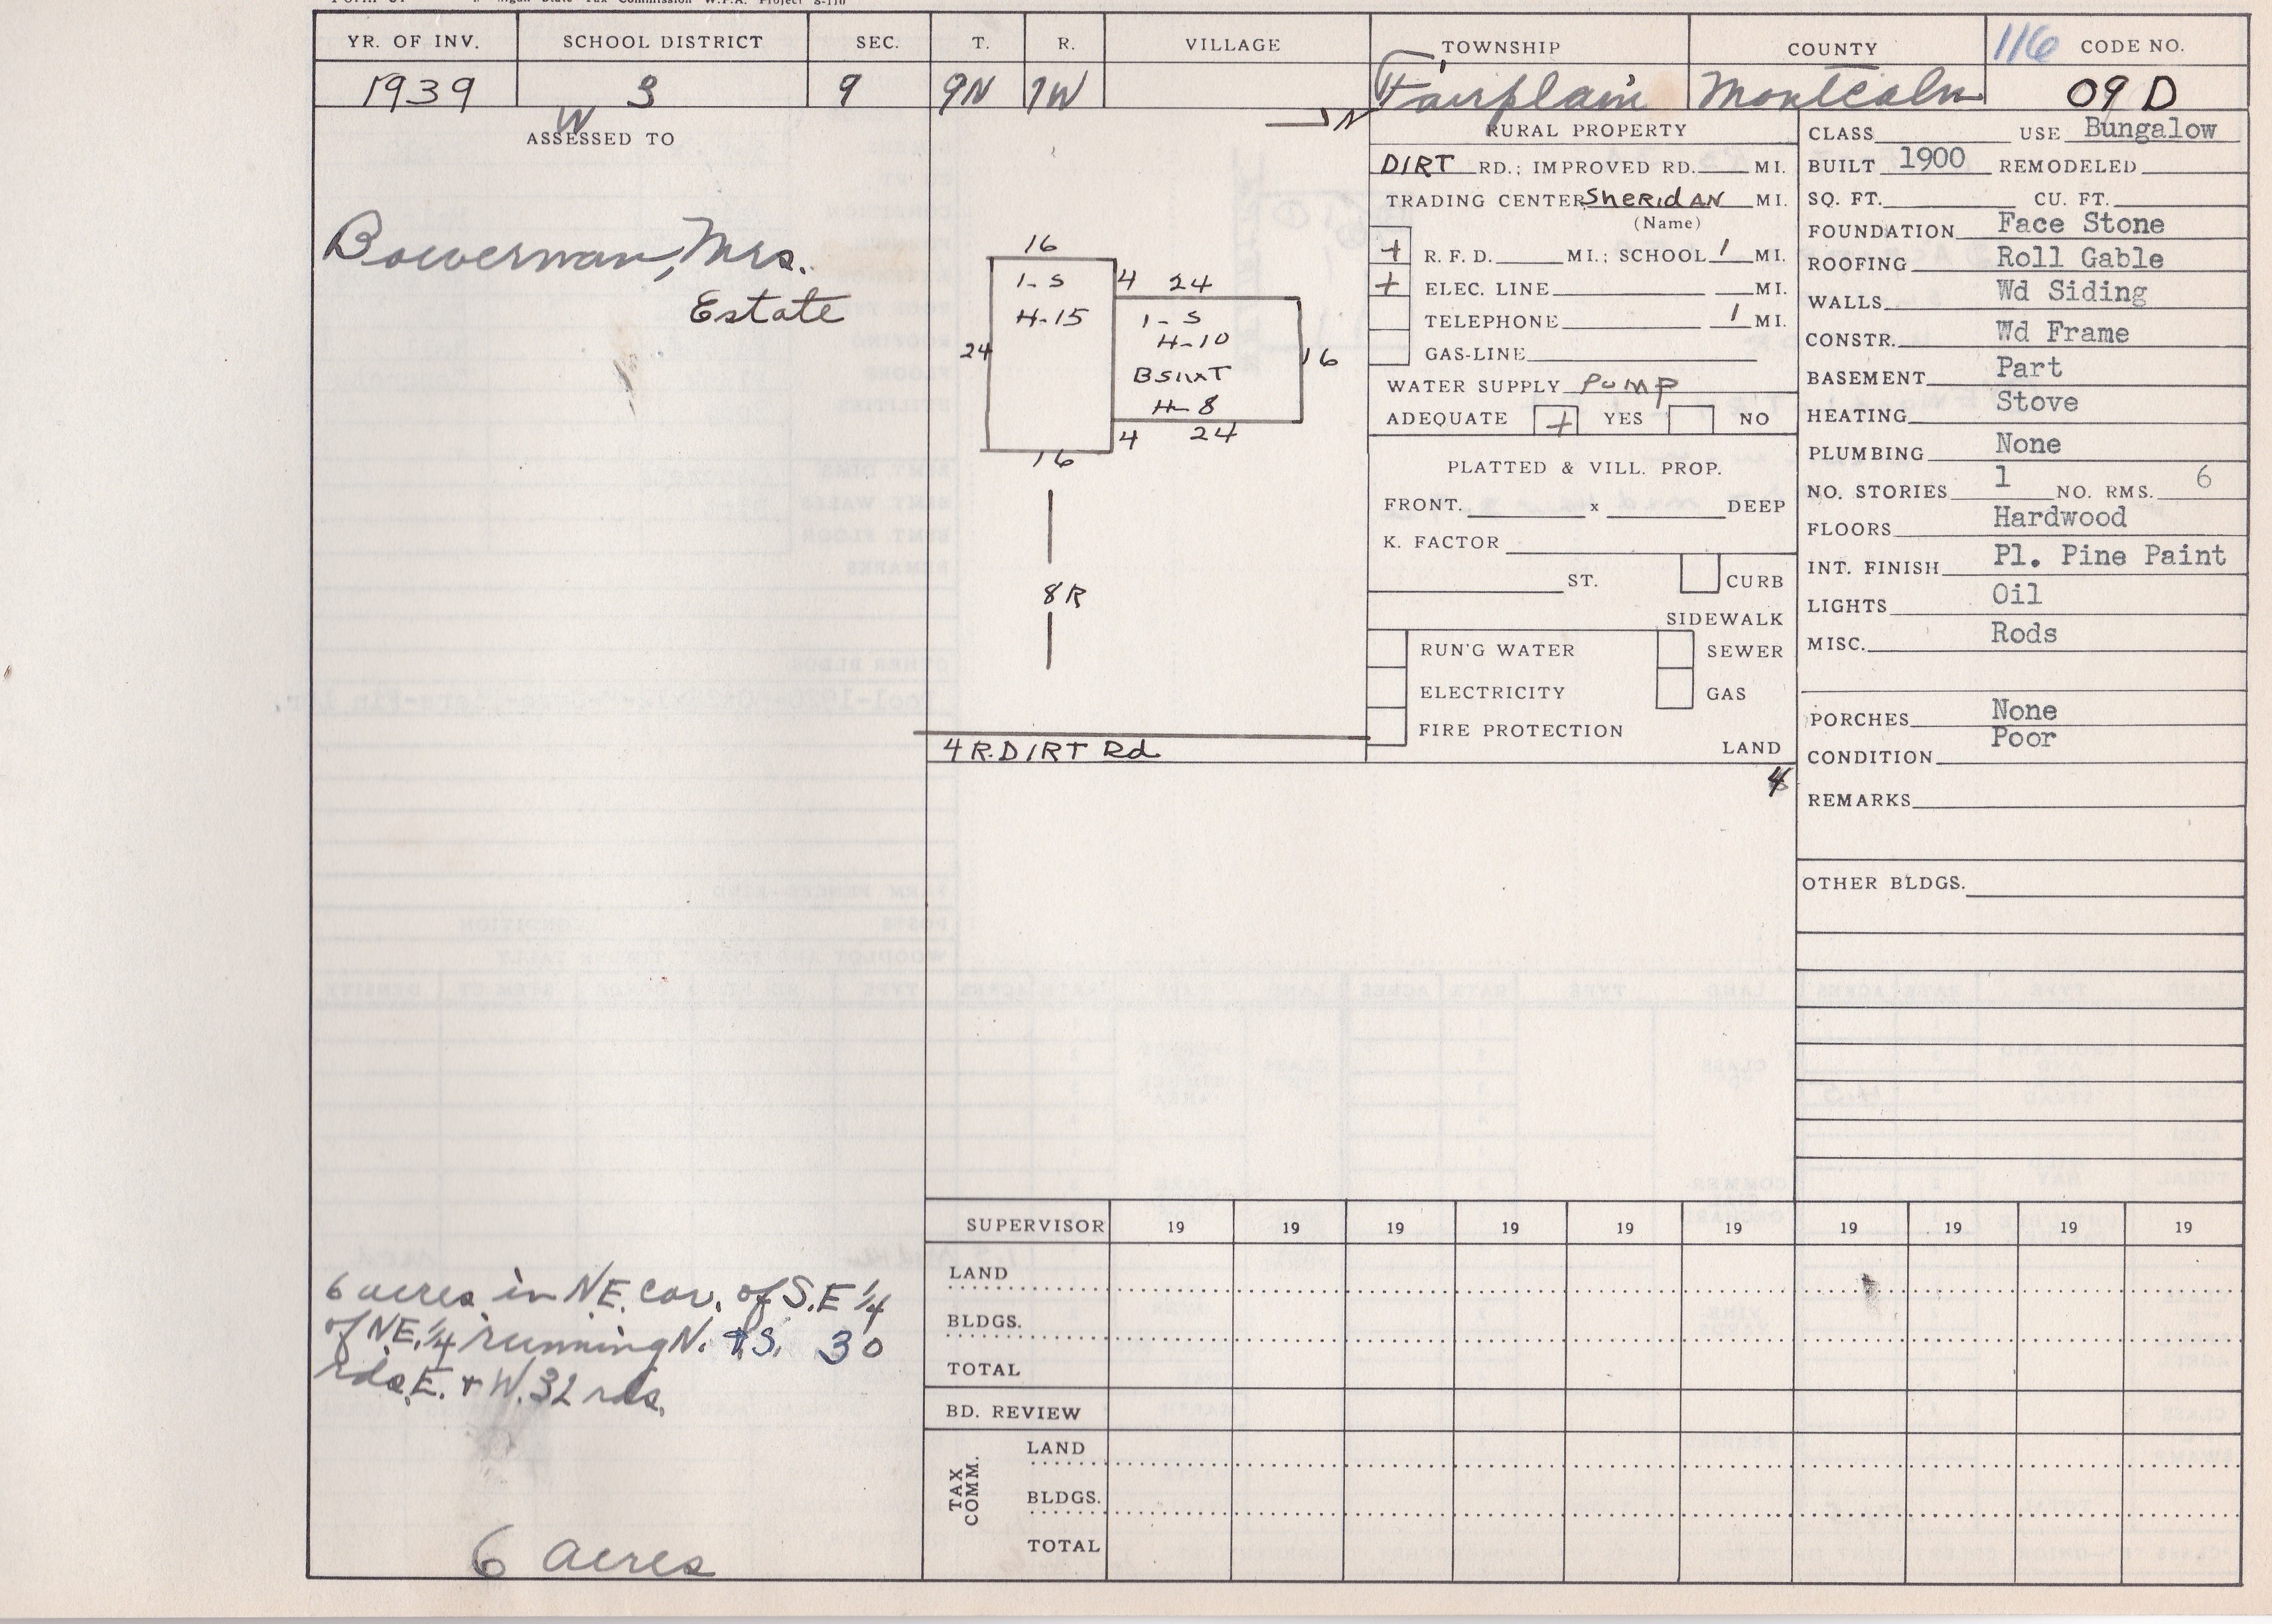 Michigan State Tax Commission W.P.A. Project S-110
YR. OF INV. SCHOOL DISTRICT SEC. T. R. VILLAGE TOWNSHIP COUNTY 116 CODE NO.
1939 3 9 9N 7W Fairplain Montcalm 09 D
W
ASSESSED TO
Bowerman, Mrs.
Estate
6 acres in N.E. cor. of S.E 1/4
of N.E. 1/4 running N. + S. 30
rds. E. + W. 32 rds.
6 acres
N
16
1-S
H-15
24
4 24
1-S
H-10
BSMXT
H-8
16
4 24
16
8R
4 R. DIRT Rd
RURAL PROPERTY
DIRT RD.; IMPROVED RD. MI.
TRADING CENTER SHERIDAN MI.
(Name)
+ R. F. D. MI.; SCHOOL 1 MI.
+ ELEC. LINE MI.
TELEPHONE 1 MI.
GAS-LINE
WATER SUPPLY PUMP
ADEQUATE + YES NO
PLATTED & VILL. PROP.
FRONT. x DEEP
K. FACTOR
ST. CURB
SIDEWALK
RUN'G WATER SEWER
ELECTRICITY GAS
FIRE PROTECTION
LAND
CLASS USE Bungalow
BUILT 1900 REMODELED
SQ. FT. CU. FT.
FOUNDATION Face Stone
ROOFING Roll Gable
WALLS Wd Siding
CONSTR. Wd Frame
BASEMENT Part
HEATING Stove
PLUMBING None
NO. STORIES 1 NO. RMS. 6
FLOORS Hardwood
INT. FINISH Pl. Pine Paint
LIGHTS Oil
MISC. Rods
PORCHES None
CONDITION Poor
REMARKS
OTHER BLDGS.
SUPERVISOR 19 19 19 19 19 19 19 19 19 19
LAND
BLDGS.
TOTAL
BD. REVIEW
TAX COMM.
LAND
BLDGS.
TOTAL